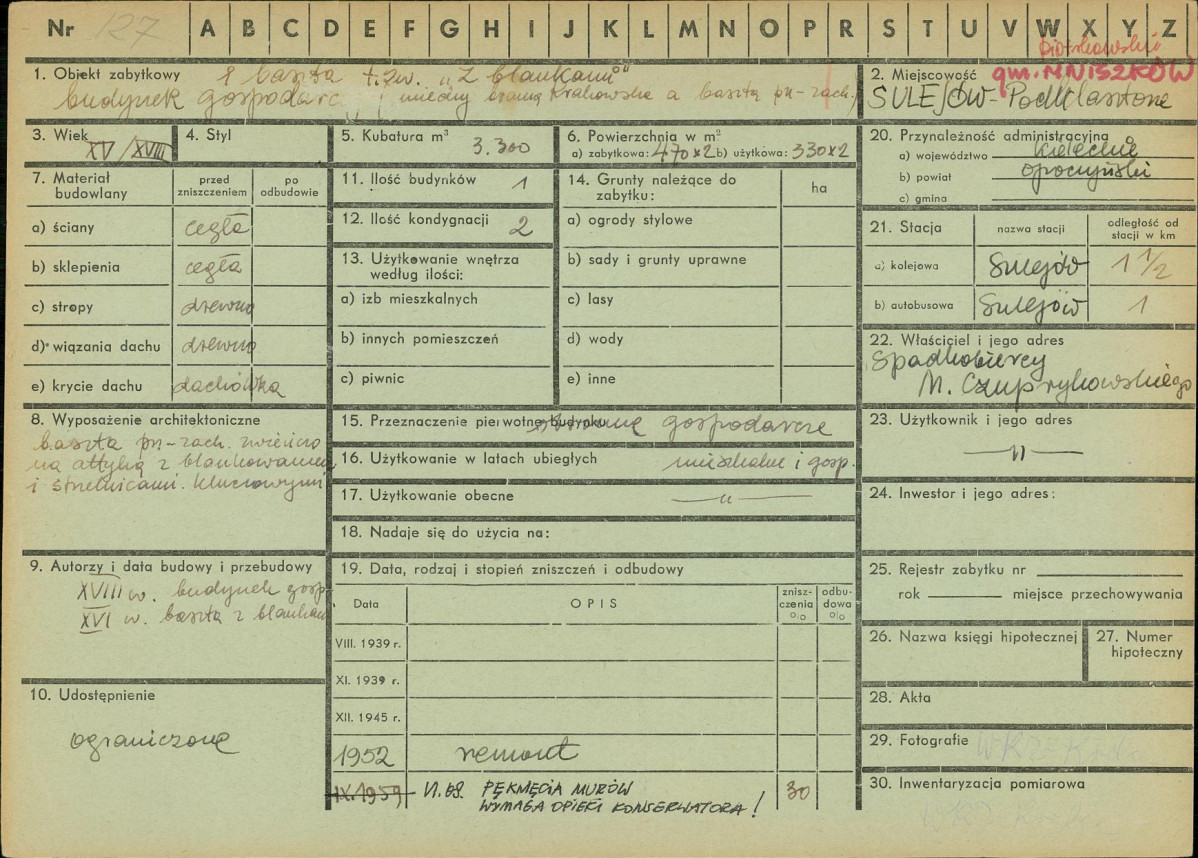 Nr 127 A B C D E F G H I J K L M N O P R S T U V W X Y Z
piotrkowskie
1. Obiekt zabytkowy baszta t.zw. „z blankami”
budynek gospodarc. między bramą Krakowską a basztą pn-zach.
2. Miejscowość gm. MNISZKÓW
SULEJÓW-Podklasztorze
3. Wiek XV/XVIII
4. Styl
5. Kubatura m³ 3.300
6. Powierzchnia w m²
a) zabytkowa: 470x2 b) użytkowa: 330x2
20. Przynależność administracyjna
a) województwo kieleckie
b) powiat opoczyński
c) gmina
7. Materiał budowlany
przed zniszczeniem
po odbudowie
a) ściany cegła
b) sklepienia cegła
c) stropy drewno
d) wiązania dachu drewno
e) krycie dachu dachówka
11. Ilość budynków 1
12. Ilość kondygnacji 2
13. Użytkowanie wnętrza
według ilości:
a) izb mieszkalnych
b) innych pomieszczeń
c) piwnic
14. Grunty należące do
zabytku:
ha
a) ogrody stylowe
b) sady i grunty uprawne
c) lasy
d) wody
e) inne
21. Stacja
nazwa stacji
odległość od
stacji w km
a) kolejowa Sulejów 1 1/2
b) autobusowa Sulejów 1
22. Właściciel i jego adres
Spadkobiercy
M. Czuprykowskiego
8. Wyposażenie architektoniczne
baszta pn-zach. zwieńczo
na attyką z blankowaniem
i strzelnicami kluczowymi
15. Przeznaczenie pierwotne budynku obronne gospodarcze
16. Użytkowanie w latach ubiegłych mieszkalne i gosp.
17. Użytkowanie obecne —"—
18. Nadaje się do użycia na:
23. Użytkownik i jego adres
—"—
24. Inwestor i jego adres:
9. Autorzy i data budowy i przebudowy
XVIII w. budynek gosp.
XVI w. baszta z blankam
19. Data, rodzaj i stopień zniszczeń i odbudowy
Data
OPIS
znisz-
czenia
%
odbu-
dowa
%
VIII. 1939 r.
XI. 1939 r.
XII. 1945 r.
1952 remont
IX. 1959 VI. 68. PĘKNIĘCIA MURÓW 30
WYMAGA OPIEKI KONSERWATORA!
25. Rejestr zabytku nr
rok miejsce przechowywania
26. Nazwa księgi hipotecznej
27. Numer
hipoteczny
10. Udostępnienie
ograniczone
28. Akta
29. Fotografie
30. Inwentaryzacja pomiarowa